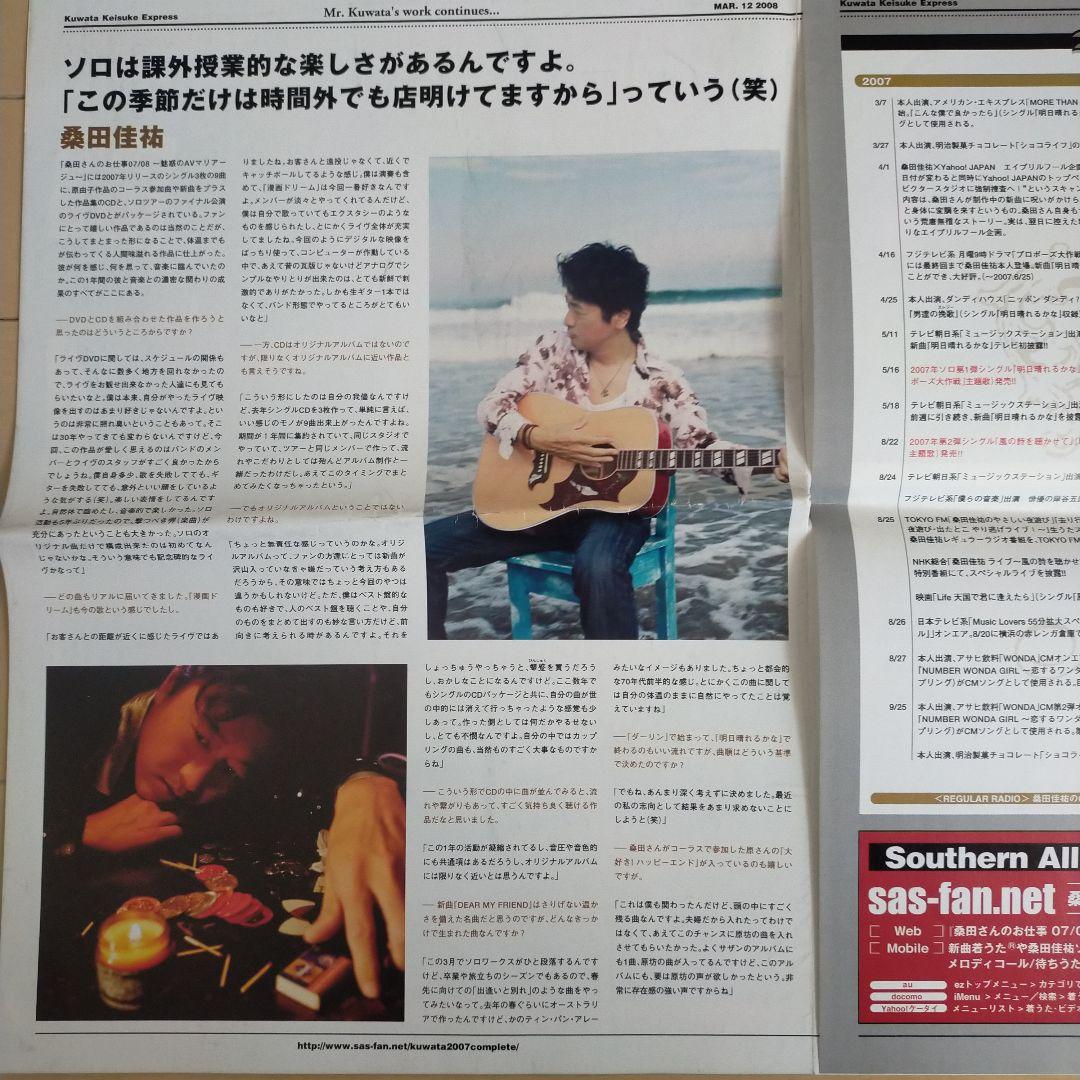 Kuwata Keisuke Express
Mr. Kuwata's work continues...
MAR. 12 2008
ソロは課外授業的な楽しさがあるんですよ。
「この季節だけは時間外でも店明けてますから」っていう(笑)
桑田佳祐
「桑田さんのお仕事07/08 〜魅惑のAVマリアー
ジュ〜」には2007年リリースのシングル3枚の9曲
に、原由子作品のコーラス参加曲や新曲をプラス
した作品集のCDと、ソロツアーのファイナル公演
のライヴDVDとがパッケージされている。ファン
にとって嬉しい作品であるのは当然のことだが、
こうしてまとまった形になることで、体温までも
が伝わってくる人間味溢れる作品に仕上がった。
彼が何を感じ、何を思って、音楽に臨んでいたの
か。この1年間の彼と音楽との濃密な関わりの成
果のすべてがここにある。
——DVDとCDを組み合わせた作品を作ろうと
思ったのはどういうところからですか?
「ライヴDVDに関しては、スケジュールの関係も
あって、そんなに数多く地方を回れなかったの
で、ライヴをお観せ出来なかった人達にも見ても
らいたいなと。僕は本来、自分がやったライヴ映
像を出すのはあまり好きじゃないんですよ。とい
うのは非常に照れ臭いということもあって。そこ
は30年やってきても変わらないんですけど、今
回、この作品が愛しく思えるのはバンドのメン
バーとライヴのスタッフがすごく良かったから
でしょうね。僕自身多少、歌を失敗してても、ギ
ターを失敗してても、意外といい顔をしているよ
うな気がする(笑)。楽しい表情をしてるんです
よ。自然体で臨めたし、音楽的で楽しかった。ソロ
活動も5年ぶりだったので、撃つべき弾(楽曲)が
充分にあったということも大きかった。ソロのオ
リジナル曲だけで構成出来たのは初めてなん
じゃないかな。そういう意味でも記念碑的なライ
ヴかなって」
——どの曲もリアルに届いてきました。「漫画ド
リーム」も今の歌という感じでしたし。
「お客さんとの距離が近くに感じたライヴではあ
りましたね。お客さんと遠投じゃなくて、近くで
キャッチボールしてるような感じ。僕は演奏も含
めて、「漫画ドリーム」は今回一番好きなんです
よ。メンバーが淡々とやってくれてるんだけど、
僕は自分で歌っていてもエクスタシーのような
ものを感じられたし、とにかくライヴ全体が充実
してましたね。今回のようにデジタルな映像を
ばっちり使って、コンピューターが作動している
中で、あえて昔の瓦版じゃないけどアナログでシ
ンプルなやりとりが出来たのは、とても新鮮で刺
激的でありがたかった。しかも生ギター1本では
なくて、バンド形態でやってるところがとてもい
いなと」
——一方、CDはオリジナルアルバムではないので
すが、限りなくオリジナルアルバムに近い作品と
も言えそうですね。
「こういう形にしたのは自分の我儘なんですけ
ど、去年シングルCDを3枚作って、単純に言えば、
いい感じのモノが9曲出来上がったんですよね。
期間が1年間に集約されていて、同じスタジオで
やっていて、ツアーと同じメンバーで作って、流
れやこだわりとしては殆んどアルバム制作と一
緒だったわけだし。あえてこのタイミングでまと
めてみたくなっちゃったという。」
——でもオリジナルアルバムということではない
わけですよね。
「ちょっと無責任な感じっていうのかな。オリジ
ナルアルバムって、ファンの方達にとっては新曲が
沢山入っていなきゃ嫌だっていう考え方もある
だろうから、その意味ではちょっと今回のやつは
違うかもしれないけど。ただ、僕はベスト盤的な
ものも好きで、人のベスト盤を聴くことや、自分
のものをまとめて出すのも妙な言い方だけど、前
向きに考えられる時があるんですよ。それを
しょっちゅうやっちゃうと、顰蹙を買うだろう
し、おかしなことになるんですけど。ここ数年で
もシングルのCDパッケージと共に、自分の曲が世
の中的には消えて行っちゃったような感覚も少
しあって。作った側としては何だかやるせない
し、とても不憫なんですよ。自分の中ではカップ
リングの曲も、当然ものすごく大事なものですか
らね」
——こういう形でCDの中に曲が並んでみると、流
れや繋がりもあって、すごく気持ち良く聴ける作
品だなと思いました。
「この1年の活動が凝縮されてるし、音圧や音色的
にも共通項はあるだろうし、オリジナルアルバム
には限りなく近いとは思うんですよ。」
——新曲「DEAR MY FRIEND」はさりげない温か
さを備えた名曲だと思うのですが、どんなきっか
けで生まれた曲なんですか?
「この3月でソロワークスがひと段落するんです
けど、卒業や旅立ちのシーズンでもあるので、春
先に向けての「出逢いと別れ」のような曲をやっ
てみたいなって。去年の春ぐらいにオーストラリ
アで作ったんですけど、かのティン・パン・アレー
みたいなイメージもありました。ちょっと都会的
な70年代前半的な感じ。とにかくこの曲に関して
は自分の体温のままに自然にやってたことは覚
えていますね」
——「ダーリン」で始まって、「明日晴れるかな」で
終わるのもいい流れですが、曲順はどういう基準
で決めたのですか?
「でもね、あんまり深く考えずに決めました。最近
の私の志向として結果をあまり求めないことに
しようと(笑)」
——桑田さんがコーラスで参加した原さんの「大
好き! ハッピーエンド」が入っているのも嬉しい
ですが。
「これは僕も関わったんだけど、頭の中にすごく
残る曲なんですよ。夫婦だから入れたってわけで
はなくて、あえてこのチャンスに原坊の曲を入れ
させてもらいたかった。よくサザンのアルバムに
も1曲、原坊の曲が入ってるんですけど、このアル
バムにも、要は原坊の声が欲しかったという。非
常に存在感の強い声ですからね」
http://www.sas-fan.net/kuwata2007complete/
Kuwata Keisuke Express
2007
3/7 本人出演、アメリカン・エキスプレス「MORE THAN
始。「こんな僕で良かったら」(シングル「明日晴れる
グとして使用される。
3/27 本人出演、明治製菓チョコレート「ショコライフ」の
4/1 桑田佳祐×Yahoo! JAPAN エイプリルフール企
日付が変わると同時にYahoo! JAPANのトップペ
ビクタースタジオに強制捜査へ!"というスキャン
内容は、桑田さんが制作中の新曲に呪いがかけら
と身体に変調を来すというもの。桑田さん自身も
いう荒唐無稽なストーリー。実は、翌日に控えた
りなエイプリルフール企画。
4/16 フジテレビ系 月曜9時ドラマ「プロポーズ大作戦
には最終回まで桑田佳祐本人登場。新曲「明日
ことができ、大好評。(〜2007.6/25)
4/25 本人出演、ダンディハウス「ニッポン ダンディ
「男達の挽歌」(シングル「明日晴れるかな」収録
5/11 テレビ朝日系「ミュージックステーション」出演
新曲「明日晴れるかな」テレビ初披露!!
5/16 2007年ソロ第1弾シングル「明日晴れるかな」
ポーズ大作戦」主題歌)発売!!
5/18 テレビ朝日系「ミュージックステーション」出演
前週に引き続き、新曲「明日晴れるかな」を披露
8/22 2007年第2弾シングル「風の詩を聴かせて」(
主題歌)発売!!
8/24 テレビ朝日系「ミュージックステーション」出演
フジテレビ系「僕らの音楽」出演 俳優の岸谷五
8/25 TOKYO FM「桑田佳祐のやさしい夜遊び
夜遊び・出たとこ やり逃げライブ!〜1生うた
桑田佳祐レギュラーラジオ番組を、TOKYO FM
NHK総合「桑田佳祐 ライブ〜風の詩を聴かせて
特別番組にて、スペシャルライブを披露!!
映画「Life 天国で君に逢えたら」(シングル「
8/26 日本テレビ系「Music Lovers 55分拡大スペ
ル」」オンエア。8/20に横浜の赤レンガ倉庫で
8/27 本人出演、アサヒ飲料「WONDA」CMオンエ
「NUMBER WONDA GIRL 〜恋するワンタ
プリング)がCMソングとして使用される。
9/25 本人出演、アサヒ飲料「WONDA」CM第2弾オ
「NUMBER WONDA GIRL 〜恋するワンダ
プリング)がCMソングとして使用される。
本人出演、明治製菓チョコレート「ショコラ
<REGULAR RADIO> 桑田佳祐の
Southern All
sas-fan.net
Web 「桑田さんのお仕事 07/0
Mobile 新曲着うた®や桑田佳祐ソ
メロディコール/待ちうた
au ezトップメニュー > カテゴリで
docomo iMenu > メニュー/検索 > 着う
Yahoo!ケータイ メニューリスト > 着うた・ビデオ